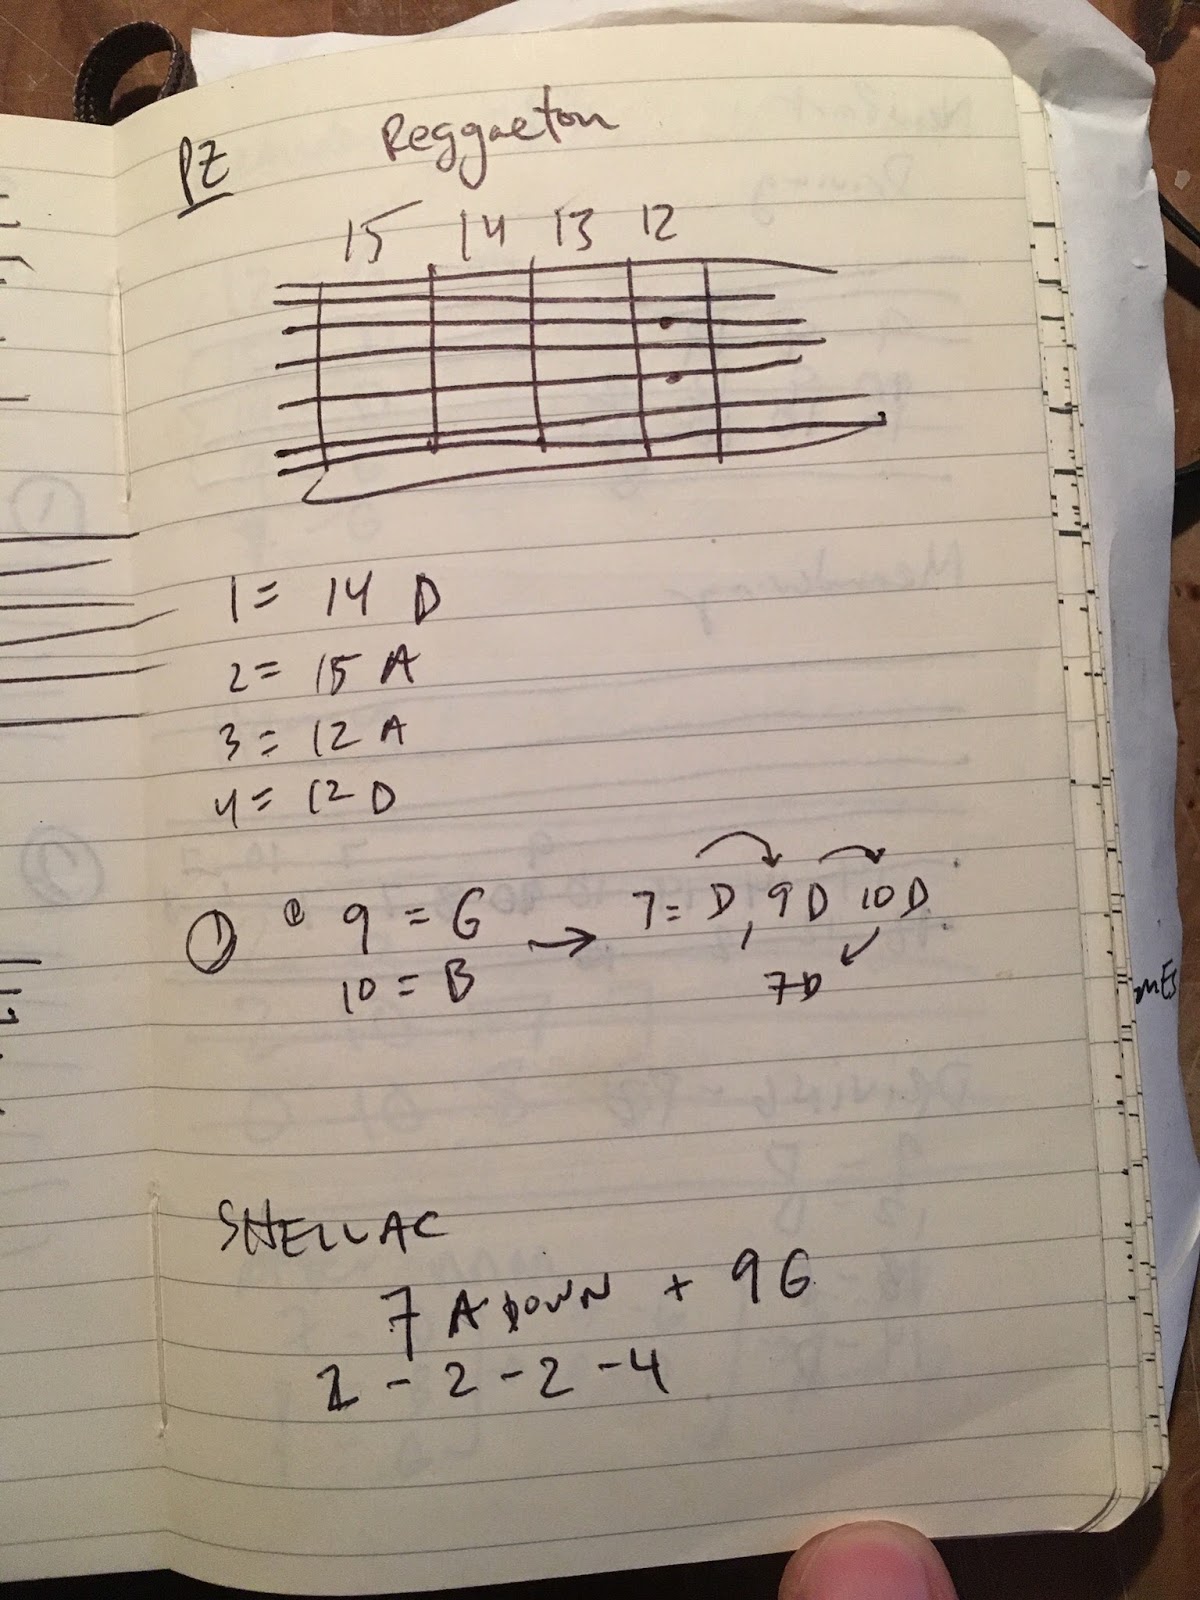 PZ Reggaeton
15 14 13 12
1 = 14 D
2 = 15 A
3 = 12 A
4 = 12 D
① 9 = G → 7 = D, 9D 10D
10 = B 7D
SHELLAC
7 A DOWN + 9G
2 - 2 - 2 - 4
MES